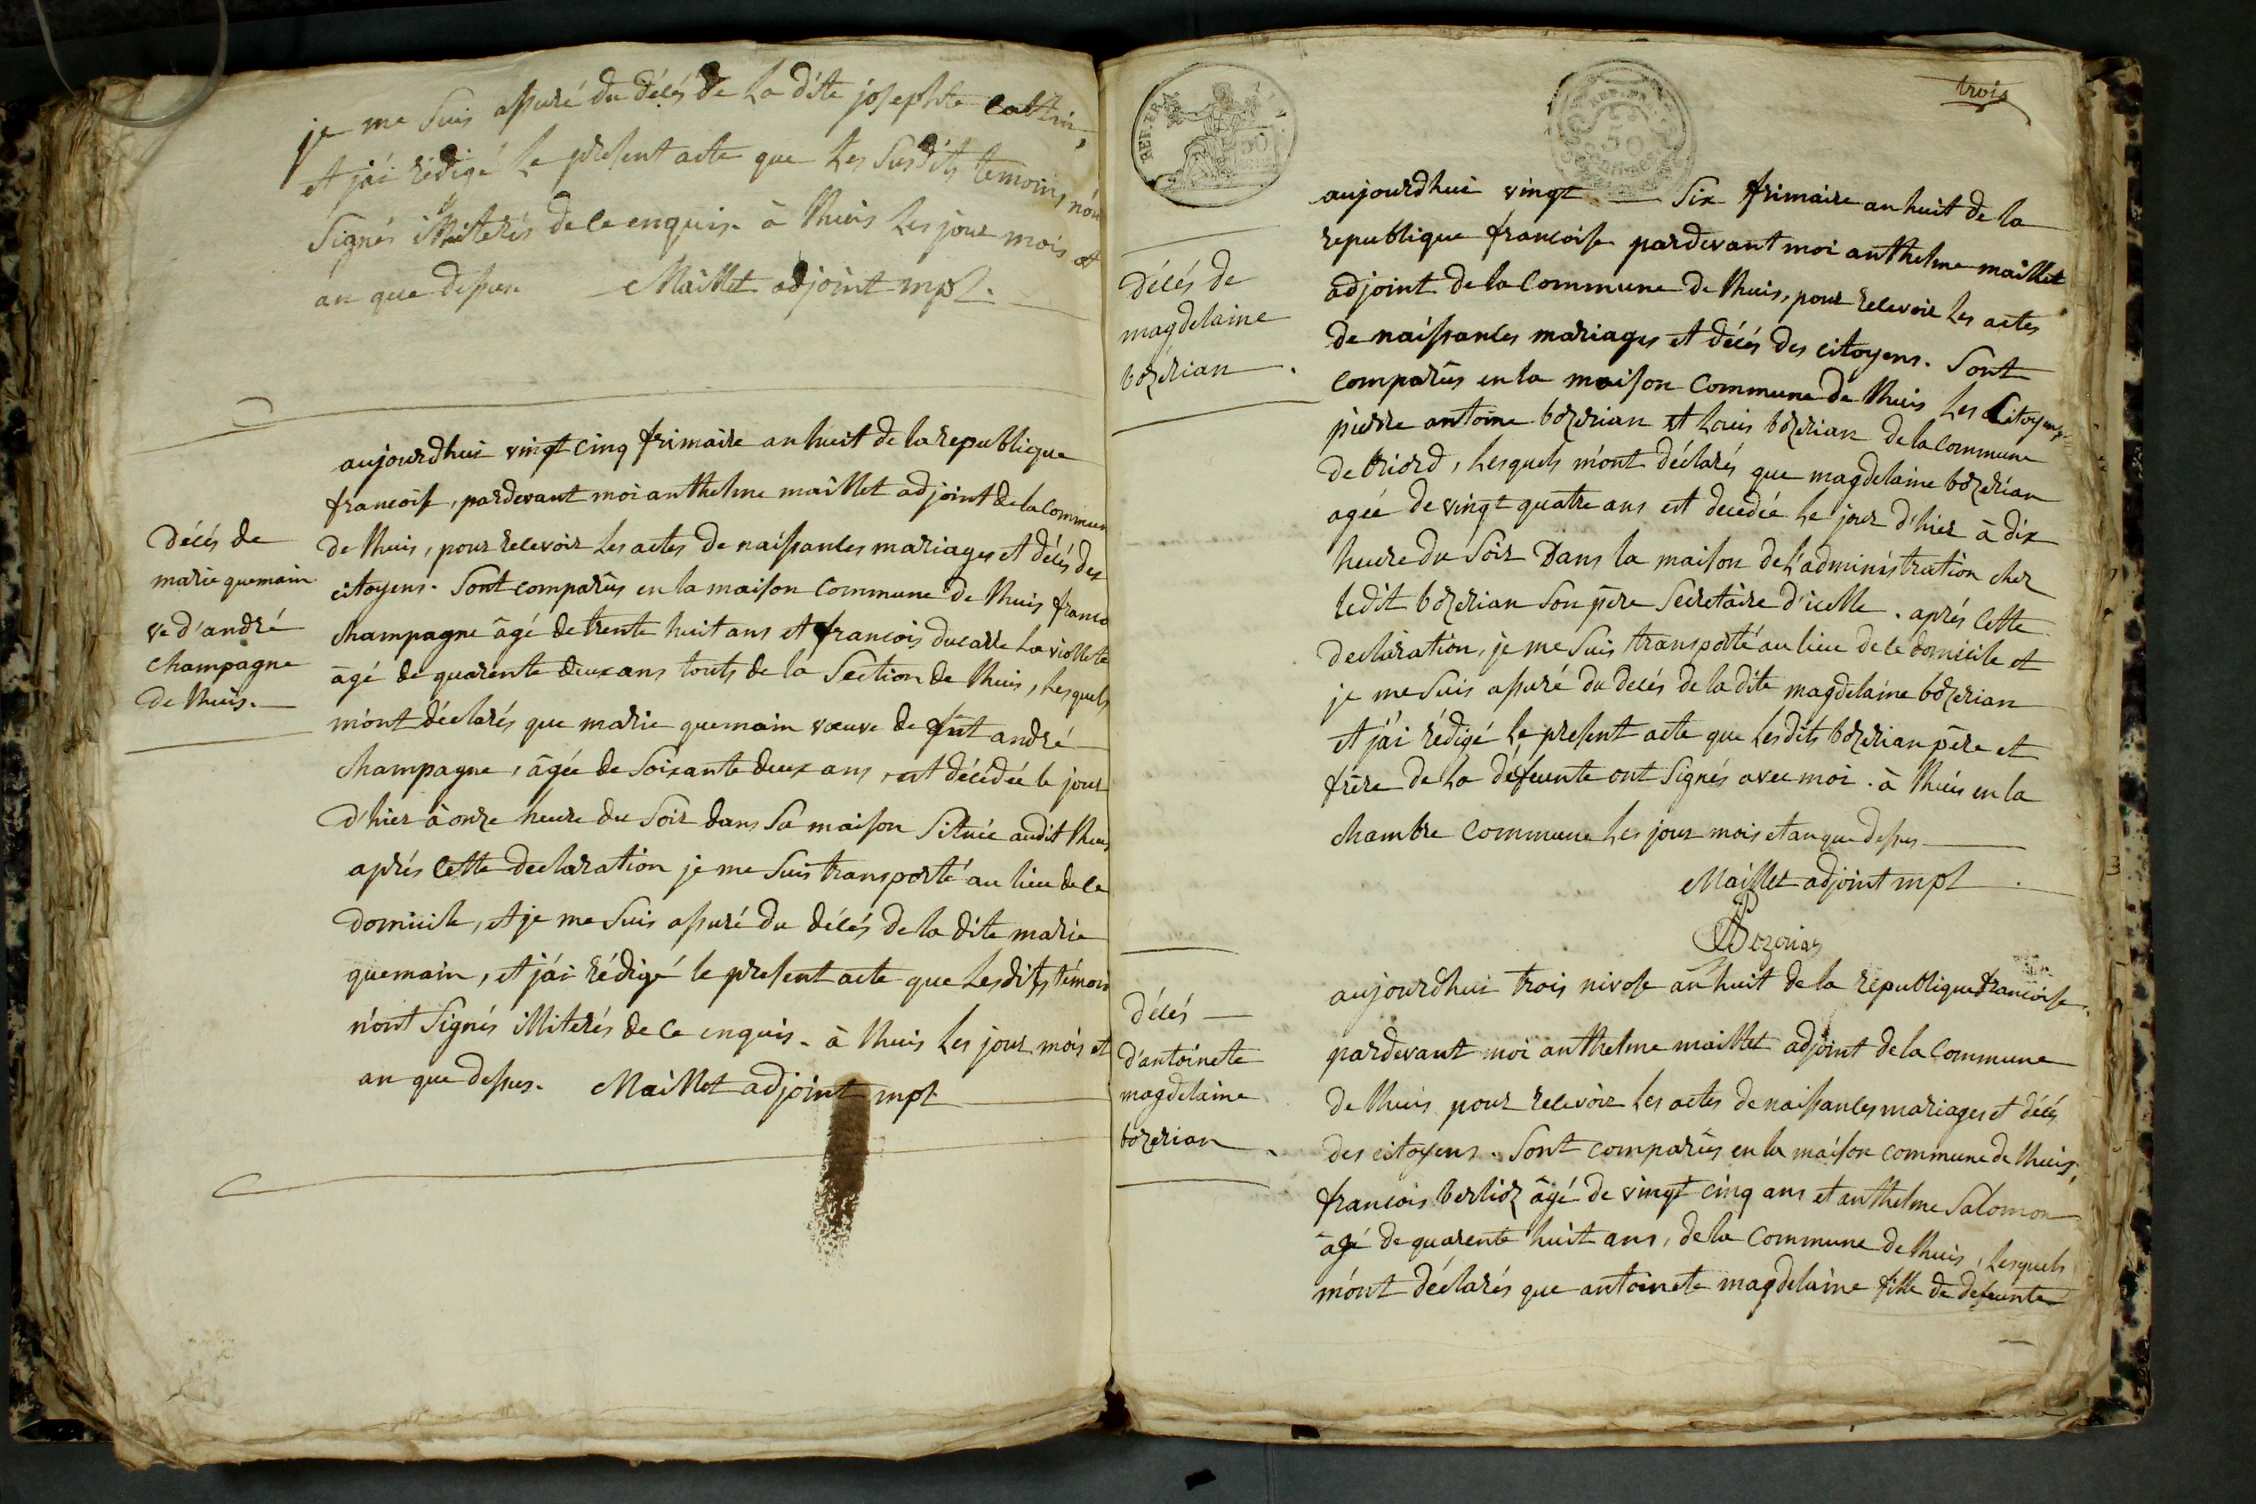 je me suis assuré du décés de la dite josephte cattin,
et j'ai rédigé le present acte que les susdits temoins n'ont
signés illiterés de ce enquis. à lhuis les jour mois et
an que dessus Maillet adjoint mpl.
décés de
marie quemain
ve d'andré
champagne
de lhuis.
aujourdhui vingt cinq frimaire an huit de la republique
francoise, pardevant moi anthelme maillet adjoint de la commun
de lhuis, pour recevoir les actes de naissances mariages et décés des
citoyens. Sont comparus en la maison commune de lhuis franco
champagne âgé de trente huit ans et francois ducarre la violete
âgé de quarente deux ans touts de la section de lhuis, lesquels
m'ont déclarés que marie quemain veuve de fut andré
champagne, âgée de soixante deux ans, est décédée le jour
d'hier à onze heure du soir dans sa maison située audit lhuis
aprés cette declaration je me suis transporté au lieu de ce
domicile, et je me suis assuré du décés de la dite marie
quemain, et j'ai rédigé le present acte que lesdits témoin
n'ont signés illiterés de ce enquis. à lhuis les jour mois et
an que dessus. Maillet adjoint mpl
REP. FRA.
50
REP. FRA.
50
trois
décés de
magdelaine
bozerian.
aujourdhui vingt six frimaire an huit de la
republique francoise pardevant moi anthelme maillet
adjoint de la commune de lhuis, pour recevoir les actes
de naissances mariages et décés des citoyens. Sont
comparus en la maison commune de lhuis les citoyens
pierre antoine bozerian et louis bozerian de la commune
de briord, lesquels m'ont déclarés que magdelaine bozerian
agée de vingt quatre ans est decedée le jour d'hier à dix
heure du soir dans la maison de l'administration chez
ledit bozerian son père secretaire d'icelle. aprés cette
declaration, je me suis transporté au lieu de ce domicile et
je me suis assuré du decés de la dite magdelaine bozerian
et j'ai rédigé le present acte que lesdits bozerian père et
frère de la defeunte ont signés avec moi. à lhuis en la
chambre commune les jour mois et an que dessus
Maillet adjoint mpl
Bozerian
décés
d'antoinete
magdelaine
bozerian
aujourdhui trois nivose an huit de la republique francoise
pardevant moi anthelme maillet adjoint de la commune
de lhuis pour recevoir les actes de naissances mariages et décés
des citoyens. Sont comparus en la maison commune de lhuis,
francois berlioz âgé de vingt cinq ans et anthelme Salomon
âgé de quarente huit ans, de la commune de lhuis, lesquels
m'ont déclarés que antoinete magdelaine fille de defeunte